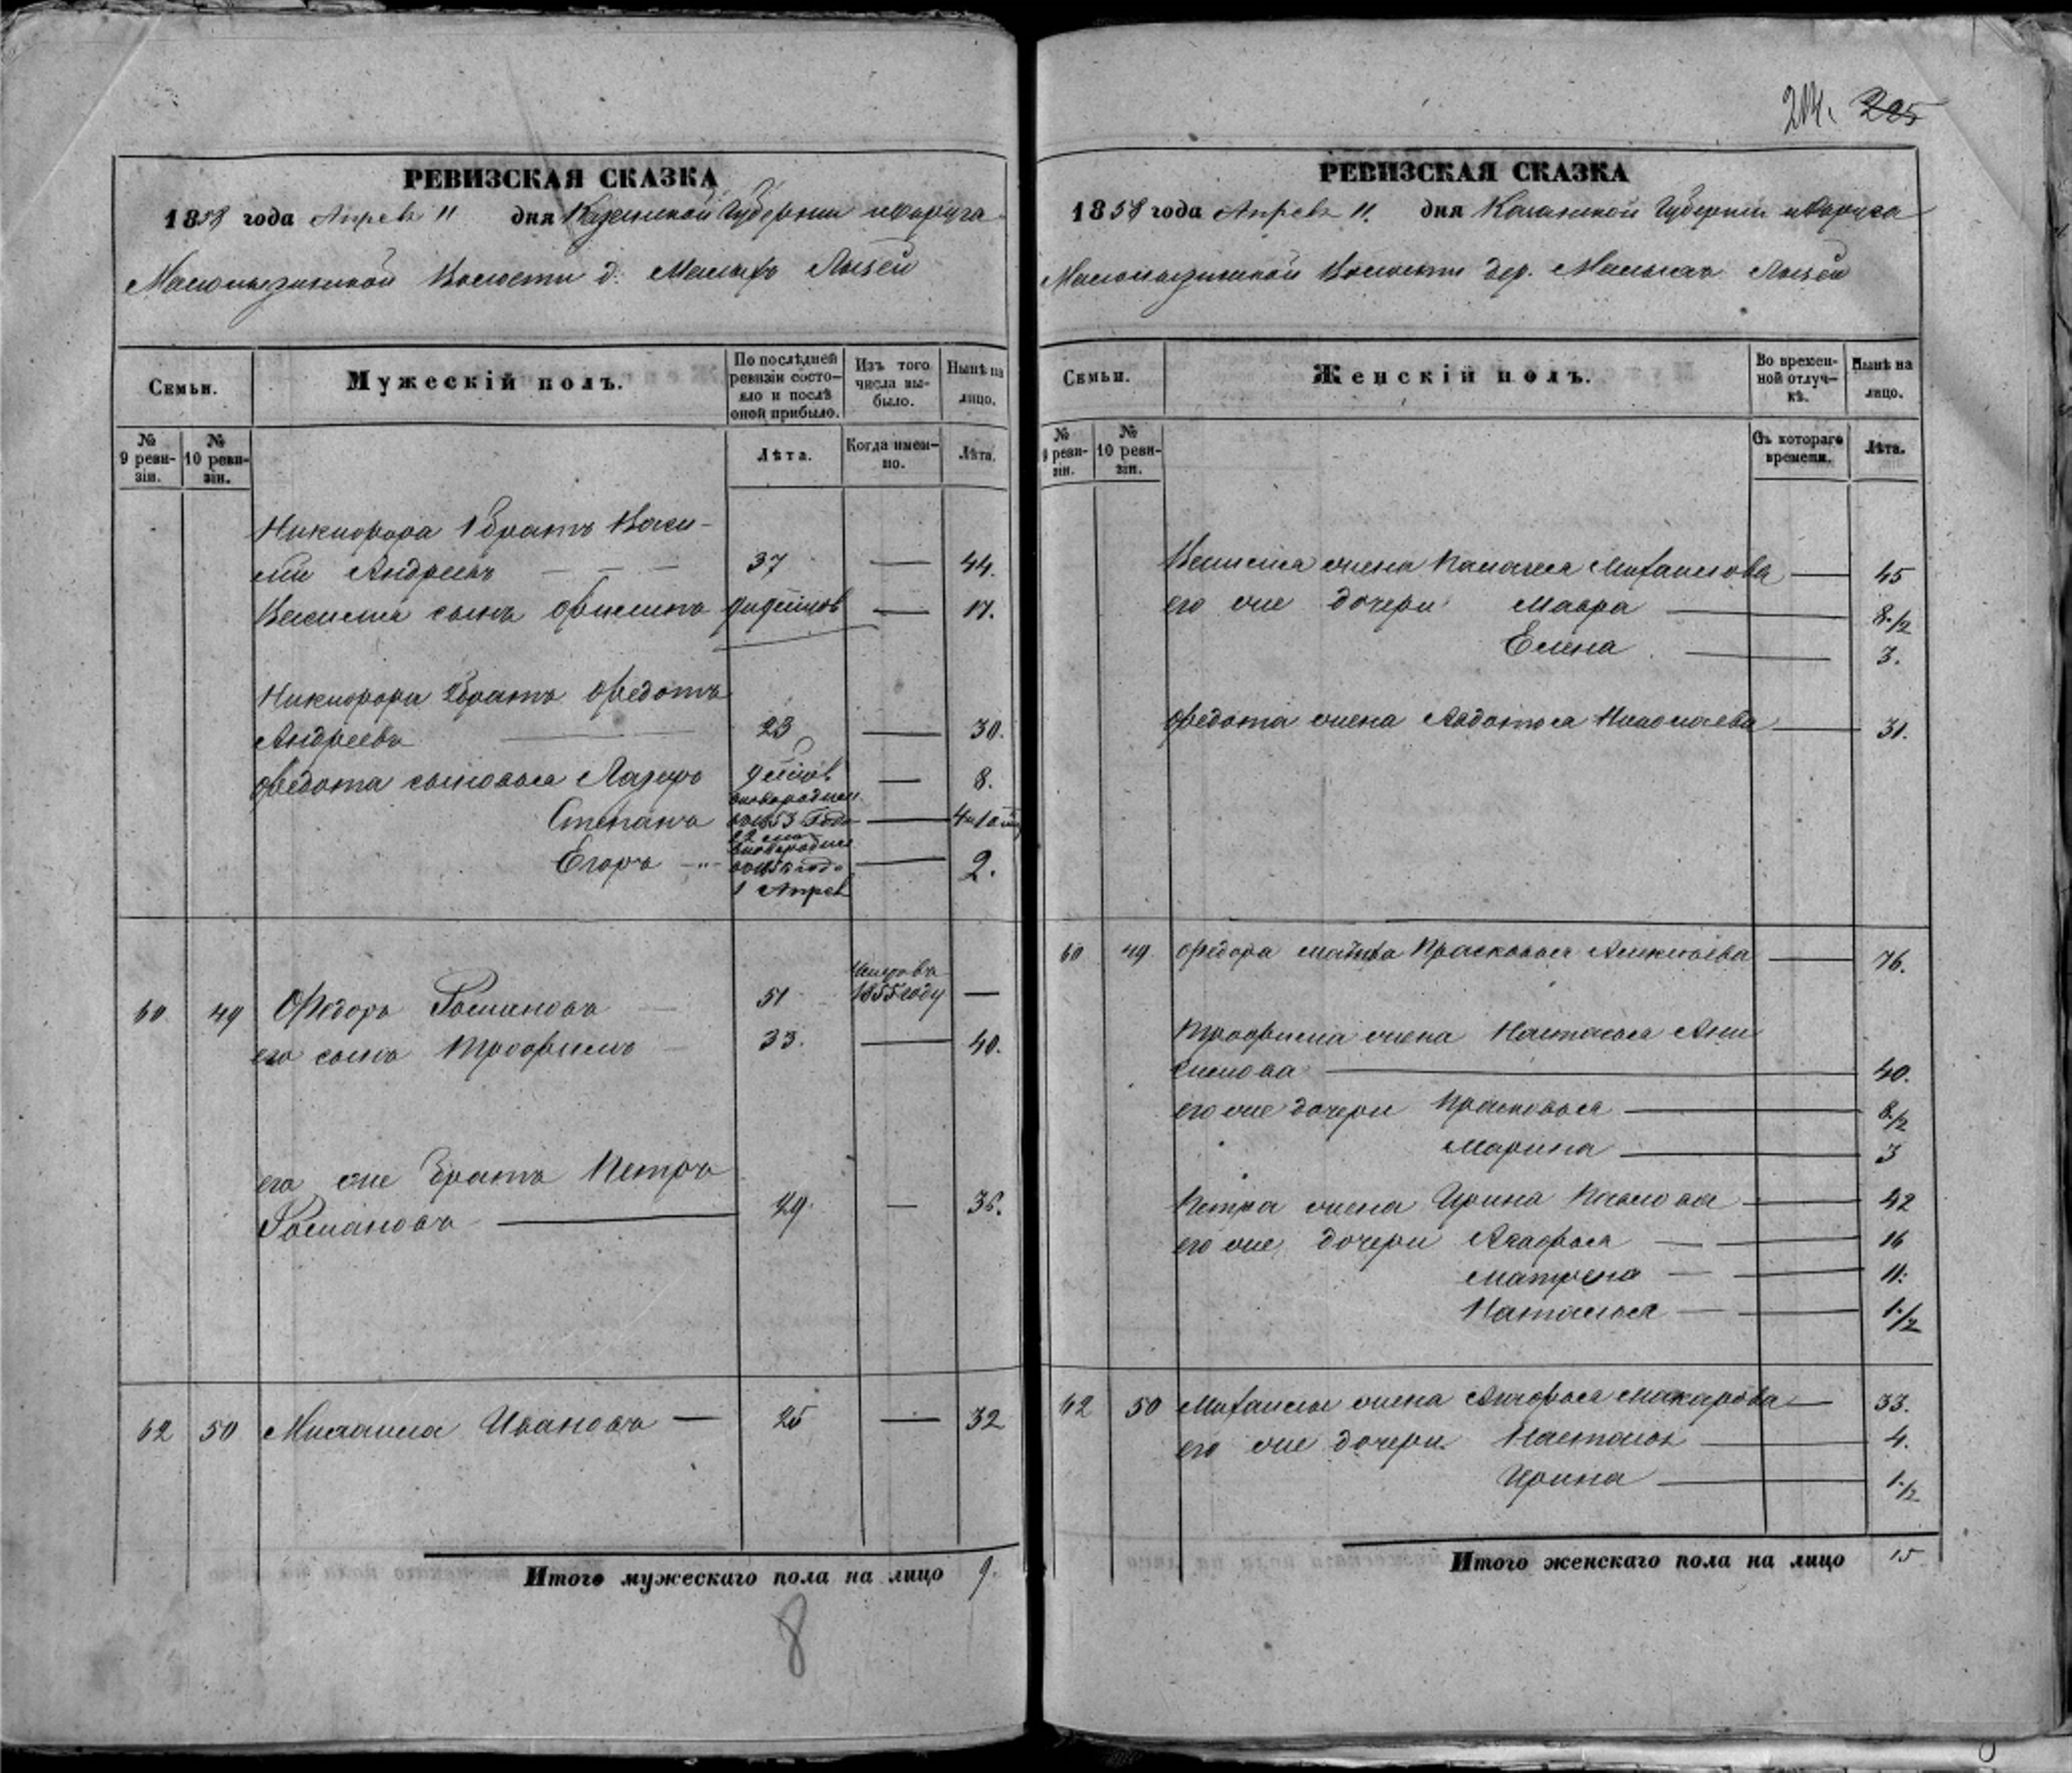 РЕВИЗСКАЯ СКАЗКА
1858 года Апреля 11 дня Казанской Губернии и округа
волости д. Малыхъ
Семьи.
Мужескій полъ.
По послѣдней ревизіи состояло и послѣ оной прибыло.
Изъ того числа выбыло.
Нынѣ на лицо.
№ 9 ревизіи.
№ 10 ревизіи.
Лѣта.
Когда именно.
Лѣта.
Никифора 1 братъ Васи-
лій Андреевъ — — — 37 — 44.
Василья сынъ Филипъ — 17.
Никифора 2 братъ Федотъ
Андреевъ — 23 — 30.
Федота сыновья Лазарь 9 — 8.
Степанъ 1853 года — 4
Егоръ —"— 1 Апреля — 2.
60 49 Федоръ Романовъ — 51 Умеръ въ 1855 году —
его сынъ Трофимъ — 33. — 40.
его же братъ Петръ
Романовъ — 29. — 36.
62 50 Михаила Ивановъ — 25 — 32
Итого мужескаго пола на лицо 9.
8
204. 205
РЕВИЗСКАЯ СКАЗКА
1858 года Апреля 11. дня Казанской Губерніи и округа
волости дер. Малыхъ
Семьи.
Женскій полъ.
Во временной отлучкѣ.
Нынѣ на лицо.
№ 9 ревизіи.
№ 10 ревизіи.
Съ котораго времени.
Лѣта.
Василья жена Палагея Михайлова — 45
его же дочери Мавра — 8 1/2
Елена — 3.
Федота жена Авдотья Николаева — 31.
60 49 Федора Прасковья — 76.
Трофима жена Настасья Ани
симова — 40.
его же дочери Прасковья — 8 1/2
Марина — 3
Петра жена Ирина Павлова — 42
его же дочери Агафья — 16
Матрена — 11.
Наталья — 1 1/2
62 50 Михайлы жена Агафья Макарова — 33.
его же дочери — 4.
Ирина — 1 1/2
Итого женскаго пола на лицо 15